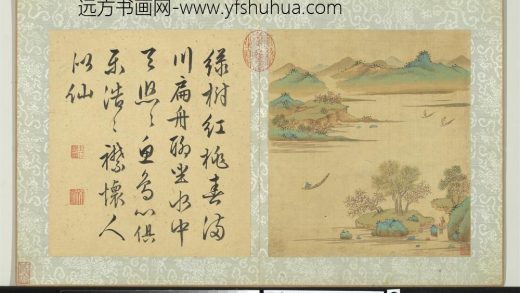 远方书画网-www.yfshuhua.com
綠樹紅桃春滿
川扁舟聊坐水中
天熙〻魚鳥心俱
樂浩〻襟懷人
似仙